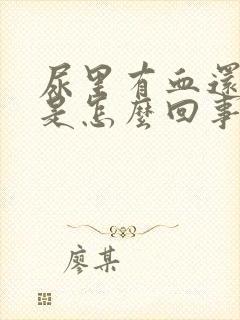 尿里有血還
是怎麼回事
廖某